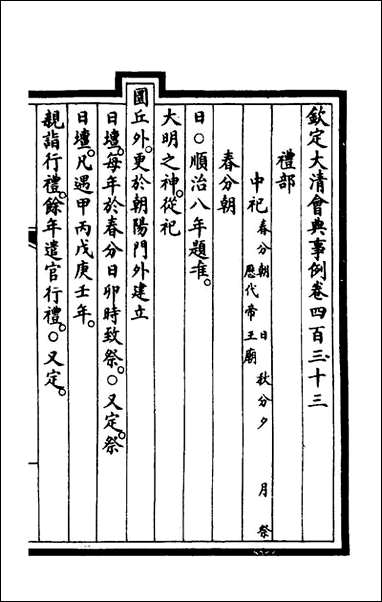 欽定大清會典事例卷四百三十三
禮部
中祀春分朝日秋分夕月祭
歷代帝王廟
春分朝
日○順治八年題准。
大明之神。從祀
圜丘外。更於朝陽門外建立
日壇。每年於春分日卯時致祭。○又定。祭
日壇。凡遇甲丙戊庚壬年。
親詣行禮。餘年遣官行禮。○又定。